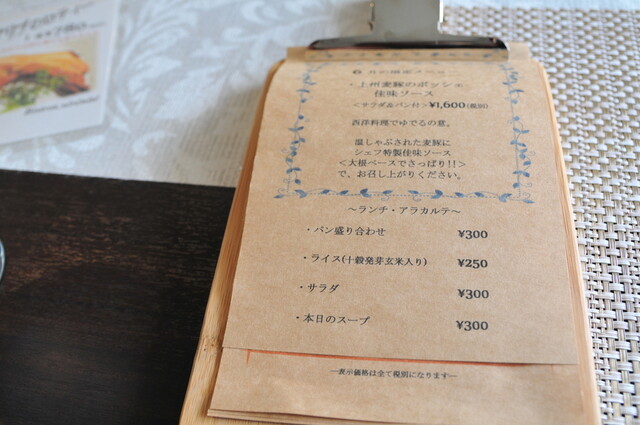 6月の限定メニュー
・上州麦豚のポッシェ
佳味ソース
<サラダ&パン付>¥1,600(税別)
西洋料理でゆでるの意。
温しゃぶされた麦豚に
シェフ特製佳味ソース
<大根ベースでさっぱり!!>
で、お召し上がりください。
~ランチ・アラカルテ~
・パン盛り合わせ ¥300
・ライス(十穀発芽玄米入り) ¥250
・サラダ ¥300
・本日のスープ ¥300
—表示価格は全て税別になります—